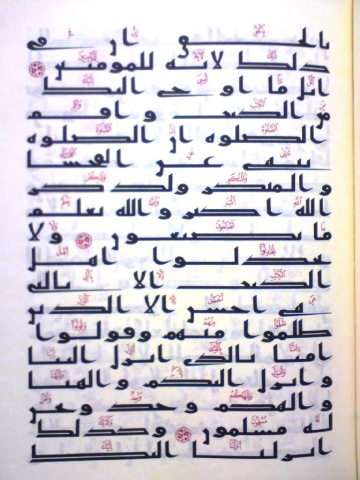 بالحق ان في
ذلك لايه للمومنين
اتل ما اوحي اليك
من الكتب و اقم
الصلوه ان الصلوه
تنهى عن الفحشا
و المنكر ولذكر
الله اكبر والله يعلم
ما تصنعون و لا
تجدلوا اهل
الكتب الا بالتي
هي احسن الا الذين
ظلموا منهم وقولوا
امنا بالذي انزل الينا
و انزل اليكم و الهنا
و الهكم و حد و نحن
له مسلمون و كذلك
انزلنا اليك